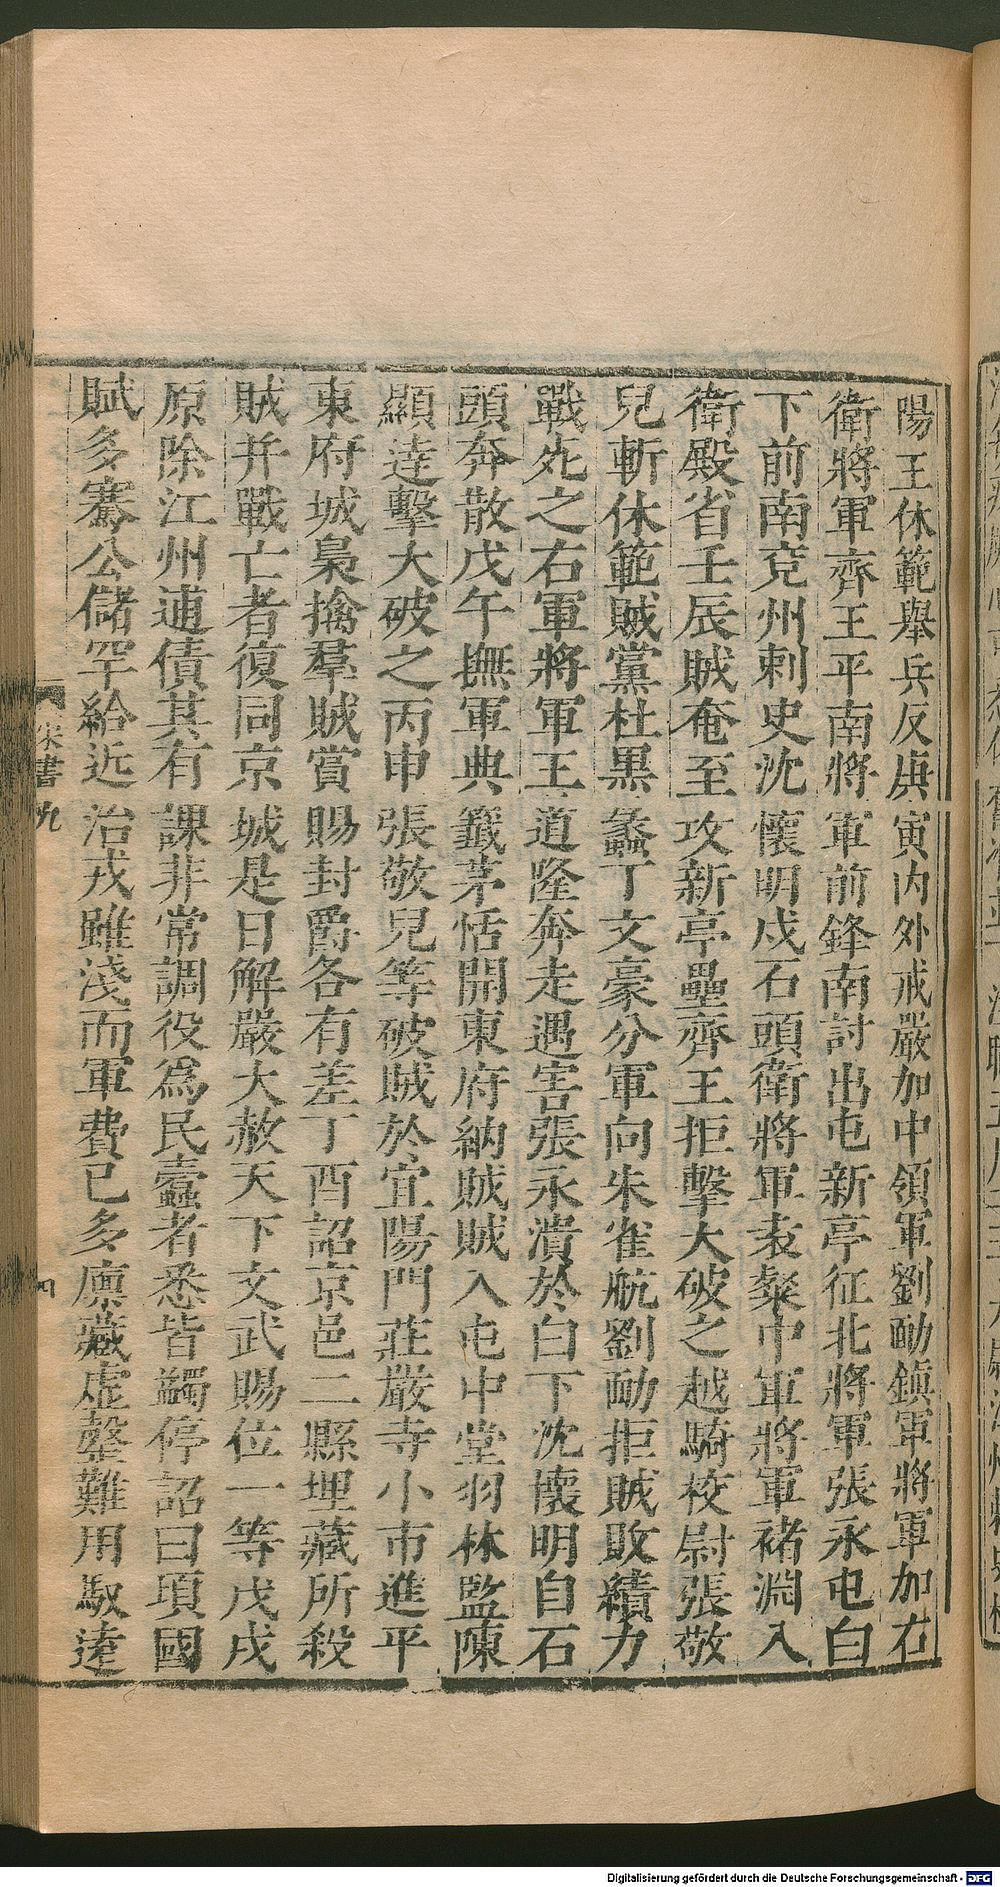 陽王休範舉兵反庚寅內外戒嚴加中領軍劉勔鎮軍將軍加右
衛將軍齊王平南將軍前鋒南討出屯新亭征北將軍張永屯白
下前南兗州刺史沈懷明戍石頭衛將軍袁粲中軍將軍褚淵入
衛殿省壬辰賊奄至攻新亭壘齊王拒擊大破之越騎校尉張敬
兒斬休範賊黨杜黑蠡丁文豪分軍向朱雀航劉勔拒賊敗績力
戰死之右軍將軍王道隆奔走遇害張永潰於白下沈懷明自石
頭奔散戊午撫軍典籤茅恬開東府納賊賊入屯中堂羽林監陳
顯達擊大破之丙申張敬兒等破賊於宜陽門莊嚴寺小市進平
東府城梟擒羣賊賞賜封爵各有差丁酉詔京邑二縣埋藏所殺
賊并戰亡者復同京城是日解嚴大赦天下文武賜位一等戊戌
原除江州逋債其有課非常調役爲民蠹者悉皆蠲停詔曰頃國
賦多騫公儲罕給近治戎雖淺而軍費已多廪藏虛罄難用馭遠
宋書九
Digitalisierung gefördert durch die Deutsche Forschungsgemeinschaft - DFG